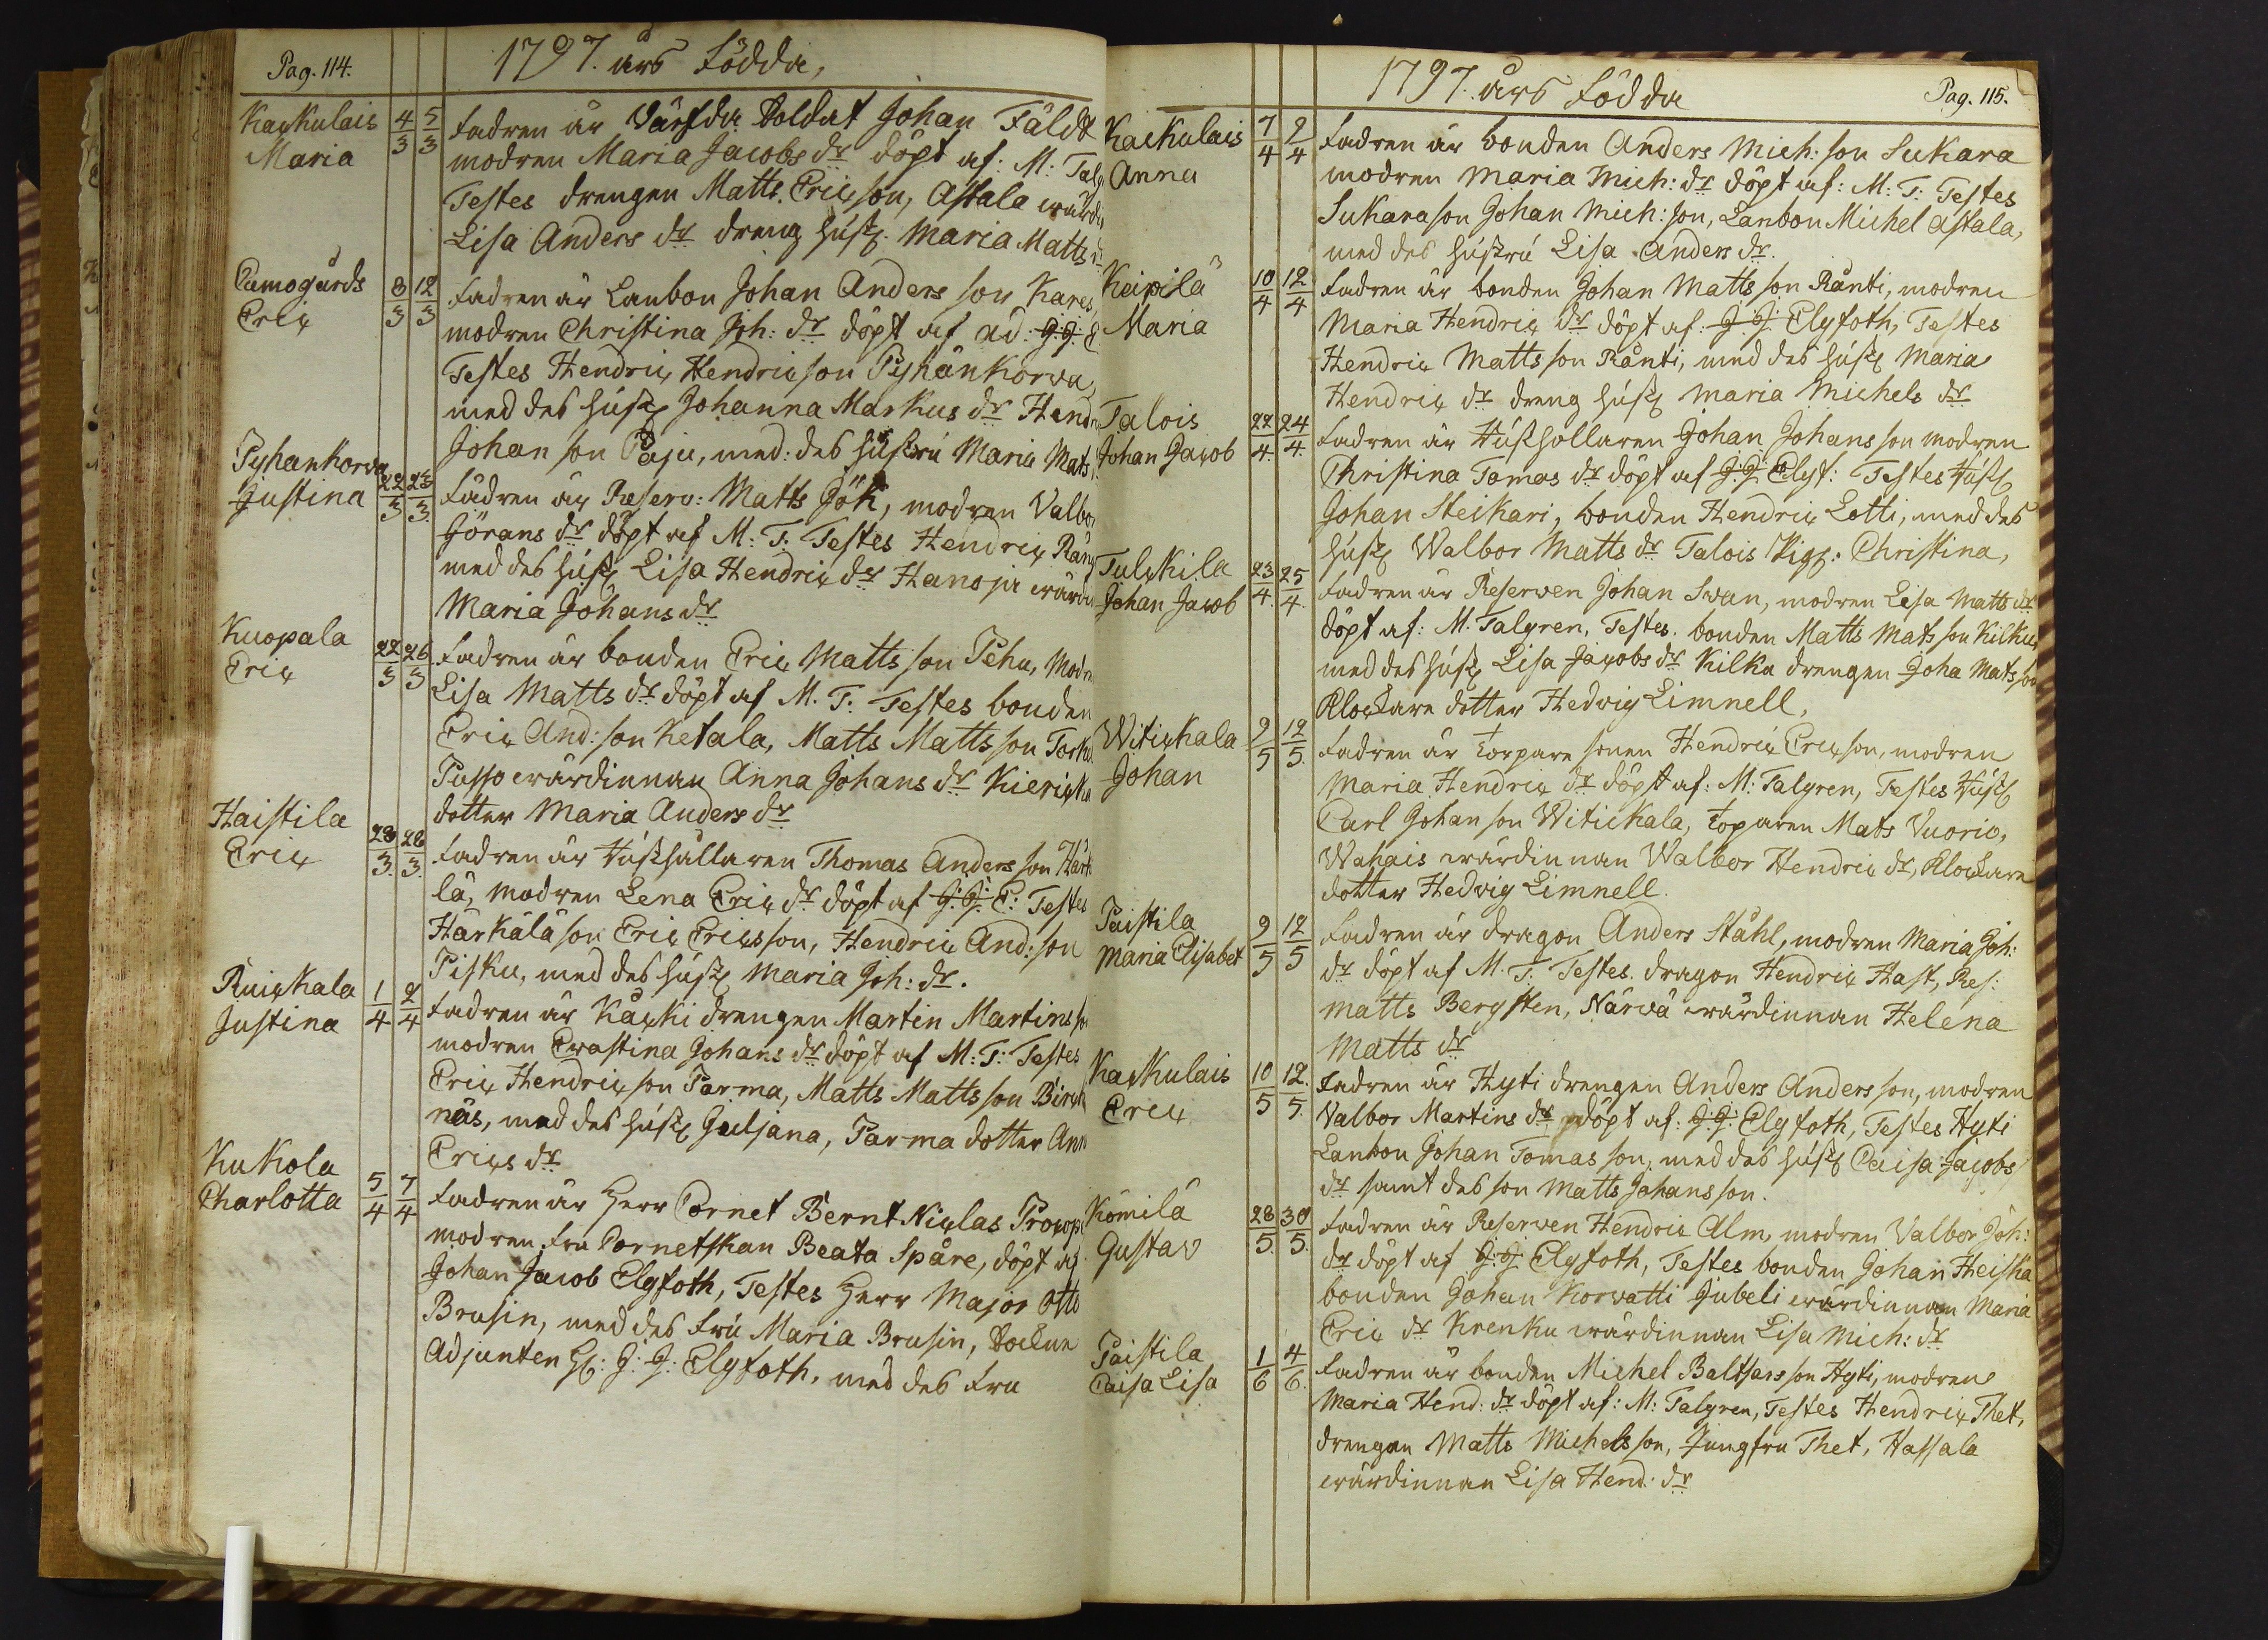 Pag. 114.
1797. års Födda,
Kaskulais 4/3 5/3 Fadren är Värfda Soldat Johan Fäldt
Maria modren Maria Jacobs dr döpt af: M: Talg
Testes drengen Matts Ericson, Astala wärdi
Lisa Anders dr dreng hust. Maria Matts dr
Cumogårds 8/3 12/3 Fadren är Lanbon Johan Anders son Kares,
Eric modren Christina Joh: dr döpt af ad: J:J: E
Testes Hendric Hendricson Pyhänkorva,
med des hust Johanna Markus dr Hendr
Johan son Paju, med: des hustru Maria Mats
Pyhankorva 22/3 23/3 Fadren är Reserv: Matts Jök, modren Valbor
Justina Görans dr döpt af M: T: Testes Hendric Räng
med des hust Lisa Hendric dr Hanoja wärdi
Maria Johans dr
Kuopala 22/3 26/3 Fadren är bonden Eric Matts son Pehu, Modr
Eric Lisa Matts dr döpt af M. T: Testes bonden
Eric And: son Ketala, Matts Matts son Tork
Pusso wärdinnan Anna Johans dr Kierick
dotter Maria Anders dr
Haistila 28/3 28/3 Fadren är Hushållaren Thomas Anders son Härk
Eric lä, modren Lena Eric dr döpt af J: J: E: Testes
Härkälä son Eric Ericsson, Hendric And: son
Pisku, med des hust Maria Joh: dr.
Ruiskala 1/4 2/4 Fadren är Kaski drengen Martin Martins so
Justina modren Erastina Johans dr döpt af M: T: Testes
Eric Hendric son Parma, Matts Matts son Birck
näs, med des hust Juljana, Parma dotter Ann
Erics dr
Kukola 5/4 7/4 Fadren är Herr Cornet Bernt Niclas Procop
Charlotta modren fru Cornetskan Beata Spåre, döpt af
Johan Jacob Elgfoth, Testes Herr Major Otto
Brusin, med des fru Maria Brusin, Sockne
Adjunten H: J: J: Elgfoth, med des fru
1797. års Födda
Pag. 115.
Kaskulais 7/4 9/4 Fadren är bonden Anders Mich: son Sukara
Anna modren Maria Mich: dr döpt af: M: T: Testes
Sukara son Johan Mich: son, Lanbon Michel Astala,
med des hustru Lisa Anders dr.
Keipilä 10/4 12/4 Fadren är bonden Johan Matts son Ränti, modren
Maria Maria Hendric dr döpt af: J: J: Elgfoth, Testes
Hendric Matts son Ränti, med des hust Maria
Hendric dr dreng hust Maria Michels dr
Talois 22/4 24/4 Fadren är Hushollaren Johan Johans son modren
Johan Jacob Christina Tomas dr döpt af J: J: Elgf: Testes Hust
Johan Steikari, bonden Hendric Lotti, med des
hust Walbor Matts dr Talois Pig: Christina,
Tulkkila 23/4 25/4 Fadren är Reserven Johan Svan, modren Lisa Matts dr
Johan Jacob döpt af: M. Talgren, Testes. bonden Matts Mats son Kilku,
med des hust Lisa Jacobs dr Kilku drengen Joha Mats son
Klockare dotter Hedvig Limnell,
Witickala 9/5 12/5 Fadren är Torpare sonen Hendric Ericson, modren
Johan Maria Hendric dr döpt af: M: Talgren, Testes Hust
Carl Johan son Witickala, Toparen Mats Vuorio,
Wahais wärdinnan Walbor Hendric dr, Klockare
dotter Hedvig Limnell.
Paistila 9/5 12/5 Fadren är dragon Anders Ståhl, modren Maria Joh:
Maria Elisabet dr döpt af M: T: Testes. dragon Hendric Hast, Res:
Matts Bergsten, Närvä wärdinnan Helena
Matts dr
Kaskulais 10/5 12/5 Fadren är Hyti drengen Anders Anders son, modren
Eric Valbor Martins dr döpt af: J: J: Elgfoth, Testes Hyti
Lanbon Johan Tomas son, med des hust Caisa Jacobs
dr samt des son Matts Johansson.
Kömilä 28/5 30/5 Fadren är Reserven Hendric Alm, modren Valbor Joh:
Gustav dr döpt af J: J: Elgfoth, Testes bonden Johan Heiskä
bonden Johan Korvatti Jubeli wärdinnan Maria
Eric dr Krenku wärdinnan Lisa Mich: dr
Paistila 1/6 4/6 Fadren är bonden Michel Baltsars son Hyti, modren
Caisa Lisa Maria Hend: dr döpt af: M: Talgren, Testes Hendric Thet,
drengen Matts Michelsson, Jungfru Thet, Hassala
wärdinnan Lisa Hend: dr